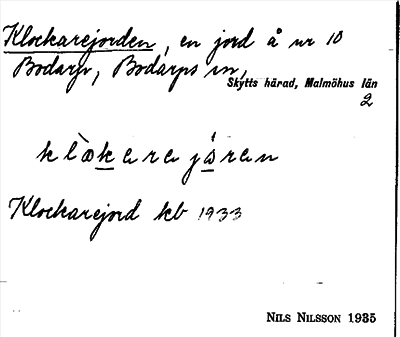 Klockarejorden, en jord å nr 10
Bodarp, Bodarps sn,
Skytts härad, Malmöhus län
2
klòkarajǻran
Klockarejord kb 1933
NILS NILSSON 1935